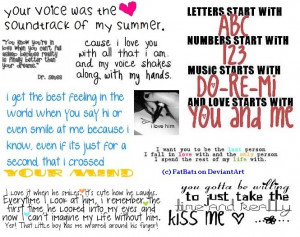 your voice was the
soundtrack of my summer.
"You know you're in
love when you can't fall
asleep because reality
is finally better than
your dreams."
Dr. Seuss
cause i love you
with all that i am
and my voice shakes
along with my hands.
i get the best feeling in
the world when you say hi or
even smile at me because I
know, even if its just for a
second, that i crossed
YOUR MIND
i love him
LETTERS START WITH
ABC
NUMBERS START WITH
123
MUSIC STARTS WITH
DO-RE-MI
AND LOVE STARTS WITH
YOU and ME
I want you to be the last person
I fall in love with and the only person
I spend the rest of my life with.
(c) FatBats on DeviantArt
I Love it when he smiles, it's cute how he laughs.
Everytime I look at him, i remember the
first time he looked into my eyes and
now i can't imagine my life without him.
Yer! That little boy has me wrapped around his finger!
you gotta be willing
to just take the
time and really
kiss me